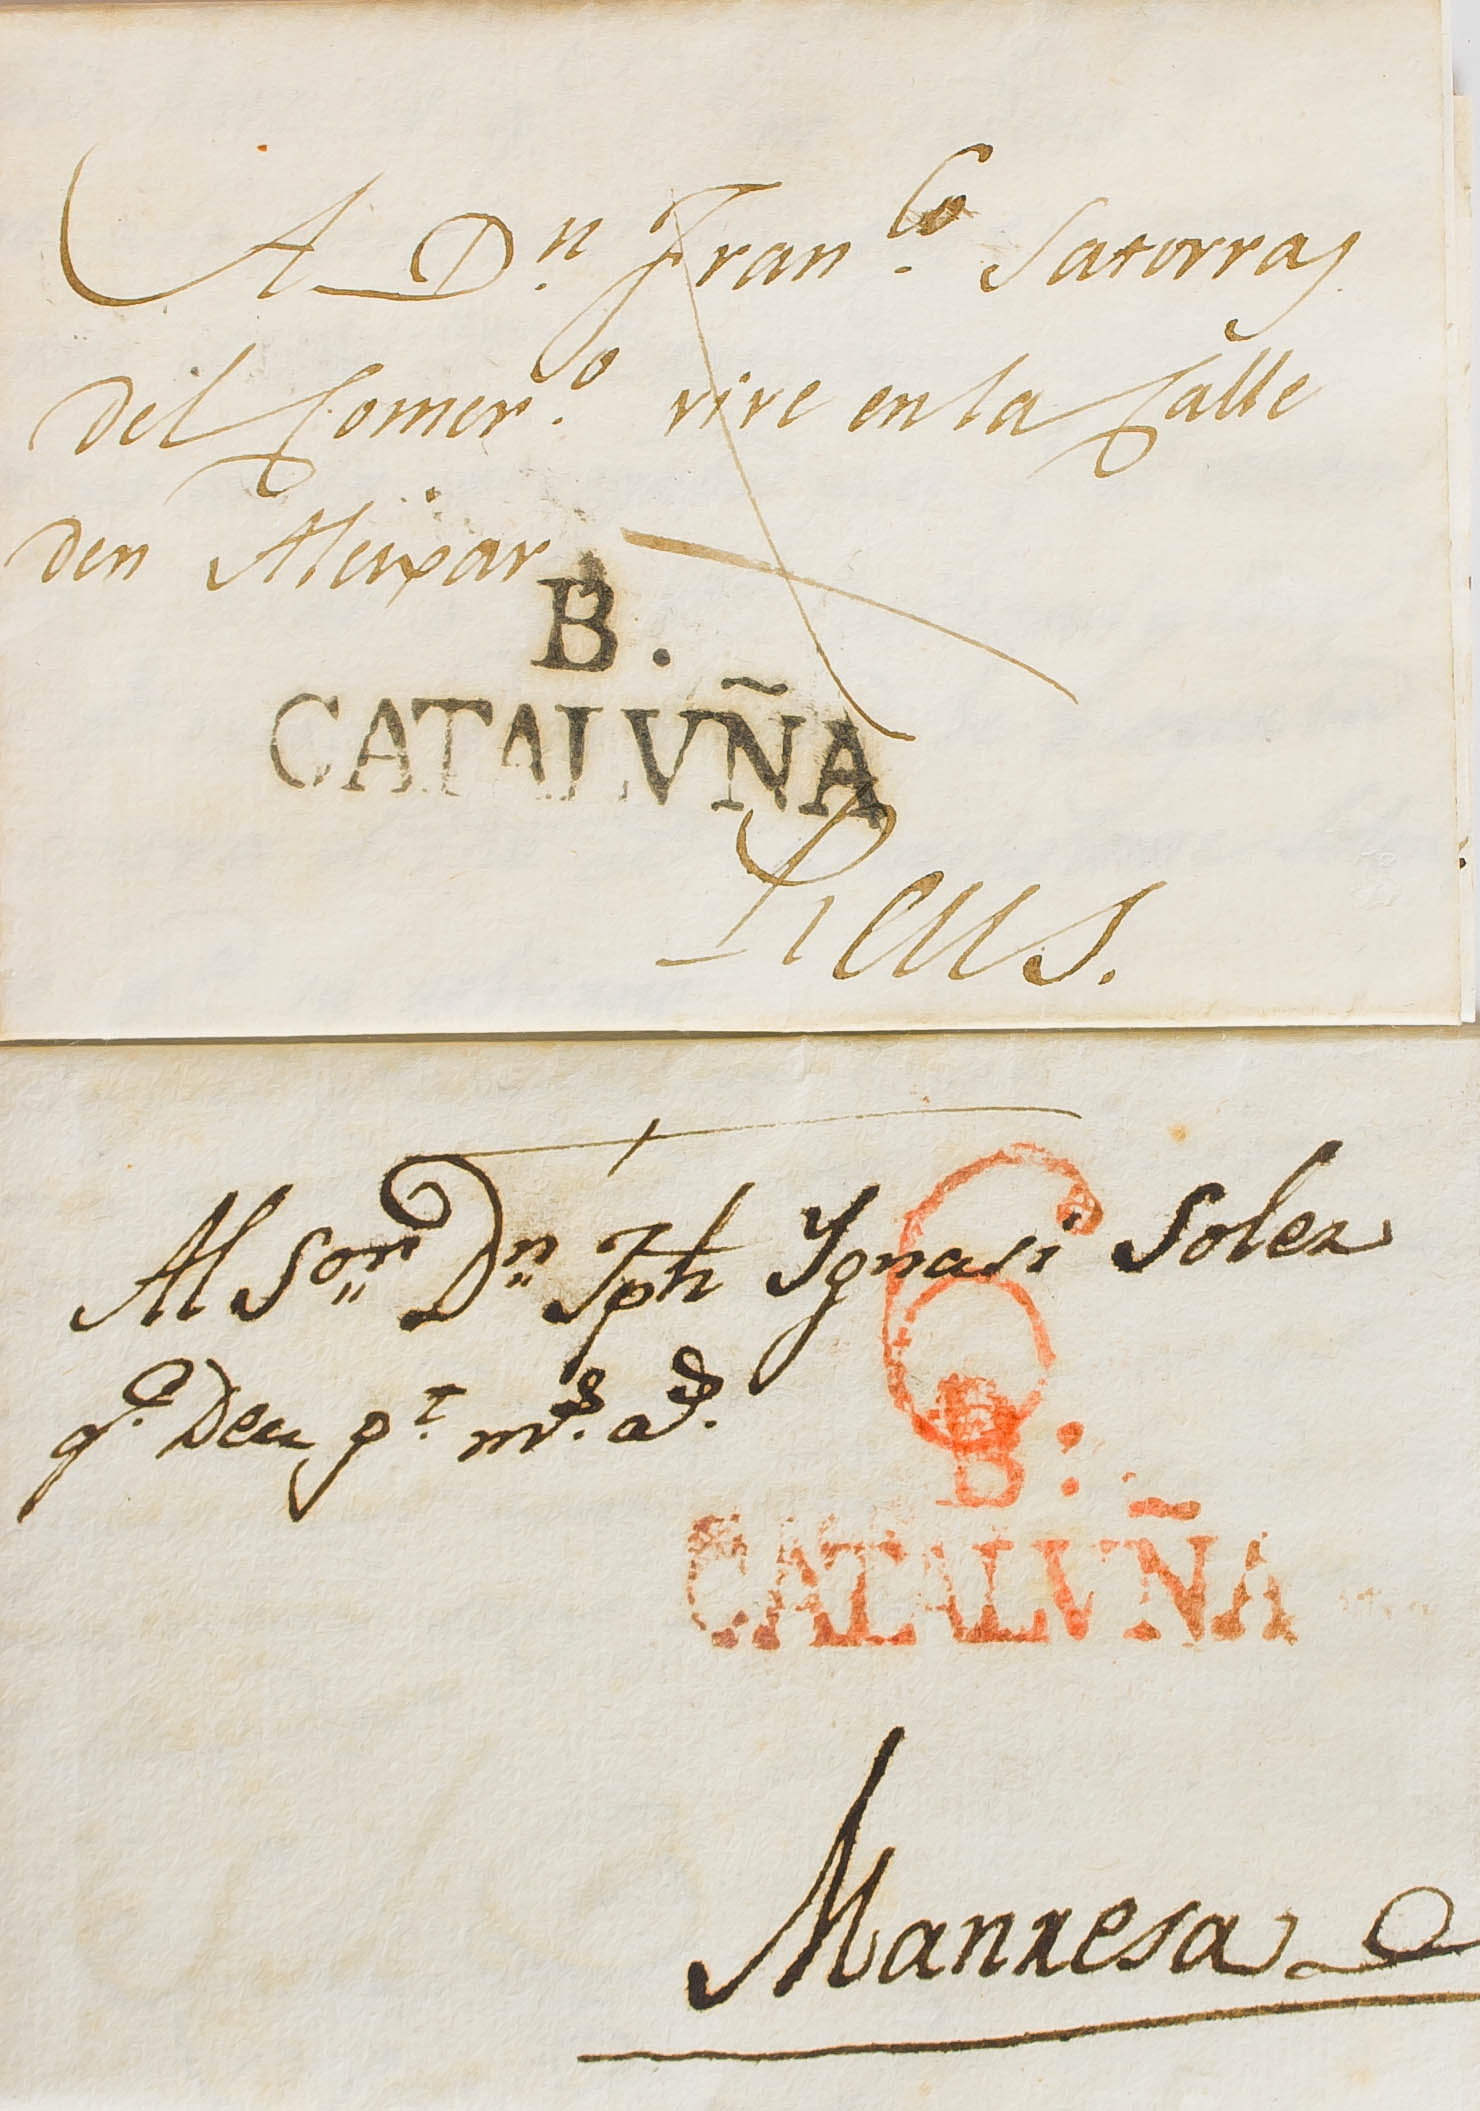 A Dn. Franco. Satorras
del Comero. vive en la Calle
den Aleixar
B.
CATALVÑA
Reus.
Al Sor. Dn. Jph Ygnasi Solez
qe. Deu gt. ms. as.
6
B.
CATALVÑA
Manresa